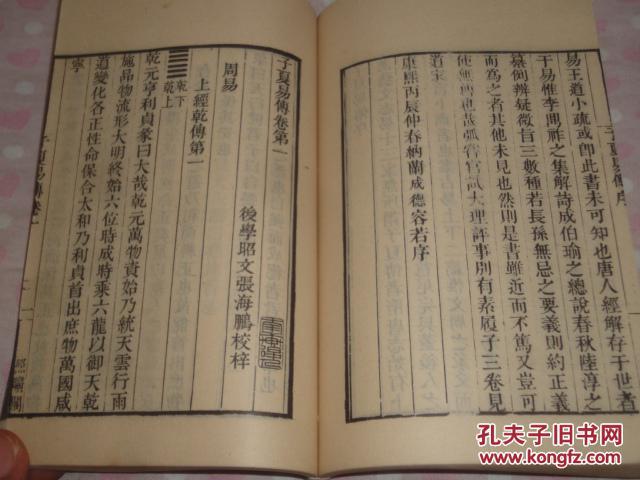 子夏易傳序
易王道小疏或卽此書未可知也唐人經解存于世者
于易惟李鼎祚之集解詩成伯瑜之總說春秋陸淳之
纂例辨疑微旨三數種若長孫無忌之要義則約正義
而為之者其他未見也然則是書雖近而不篤又豈可
使無也哉弧嘗官試大理評事別有素履子三卷見
道宋
康熙丙辰仲春納蘭成德容若序
子夏易傳卷第一
後學昭文張海鵬校梓
周易
上經乾傳第一
乾下
乾上
乾元亨利貞彖曰大哉乾元萬物資始乃統天雲行雨
施品物流形大明終始六位時成時乘六龍以御天乾
道變化各正性命保合太和乃利貞首出庶物萬國咸
寧
子夏易傳卷一
照曠閣
孔夫子旧书网
www.kongfz.com